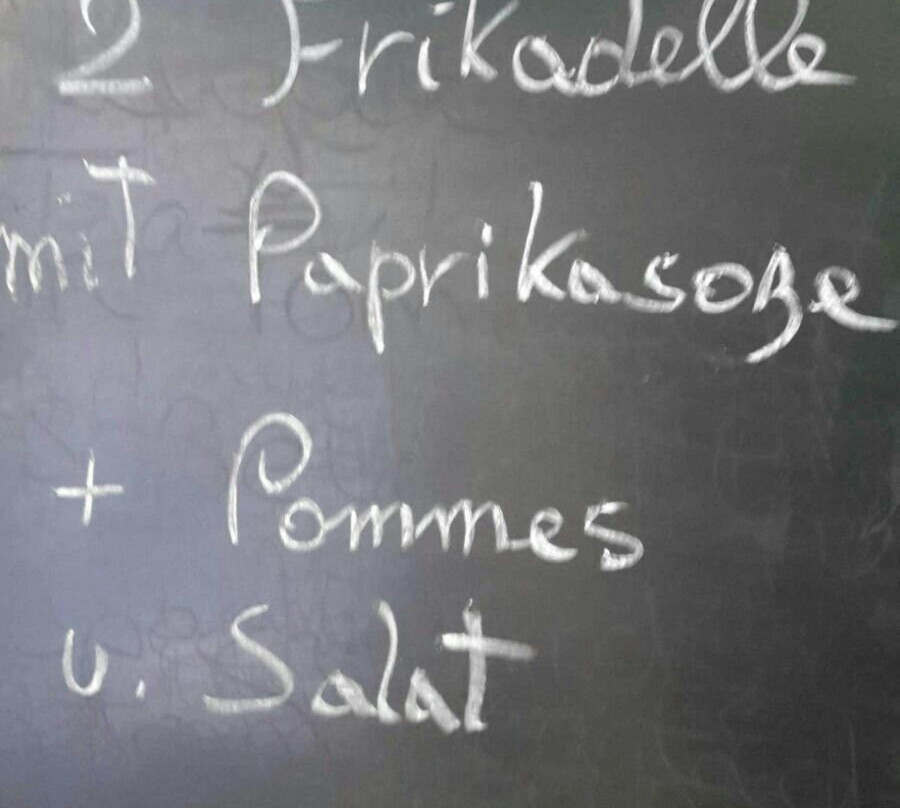 2 Frikadelle
mit Paprikasoße
+ Pommes
u. Salat